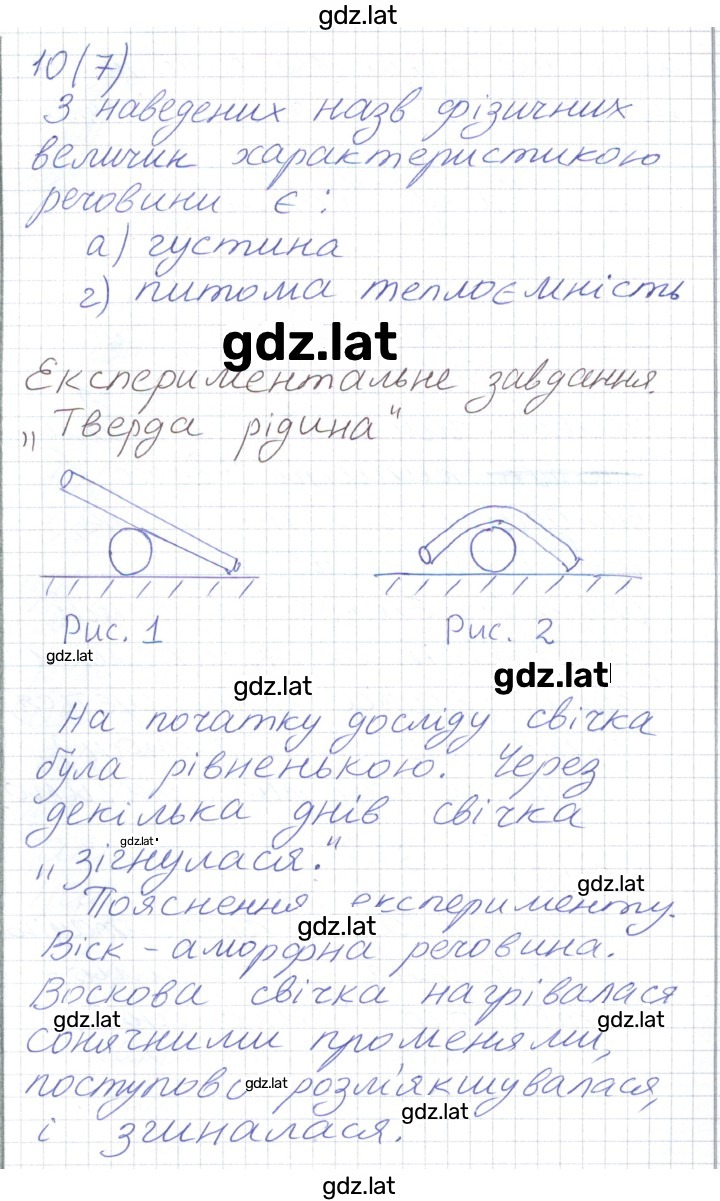 gdz.lat
10(7)
З наведених назв фізичних
величин характеристикою
речовини є:
а) густина
г) питома теплоємність
gdz.lat
Експериментальне завдання.
„Тверда рідина"
Рис. 1 Рис. 2
gdz.lat
gdz.lat
gdz.lat
На початку досліду свічка
була рівненькою. Через
декілька днів свічка
gdz.lat
„зігнулася."
gdz.lat
Пояснення експерименту.
gdz.lat
Віск - аморфна речовина.
Воскова свічка нагрівалася
gdz.lat gdz.lat
сонячними променями,
поступово розм'якшувалася,
gdz.lat
gdz.lat
і згиналася.
gdz.lat